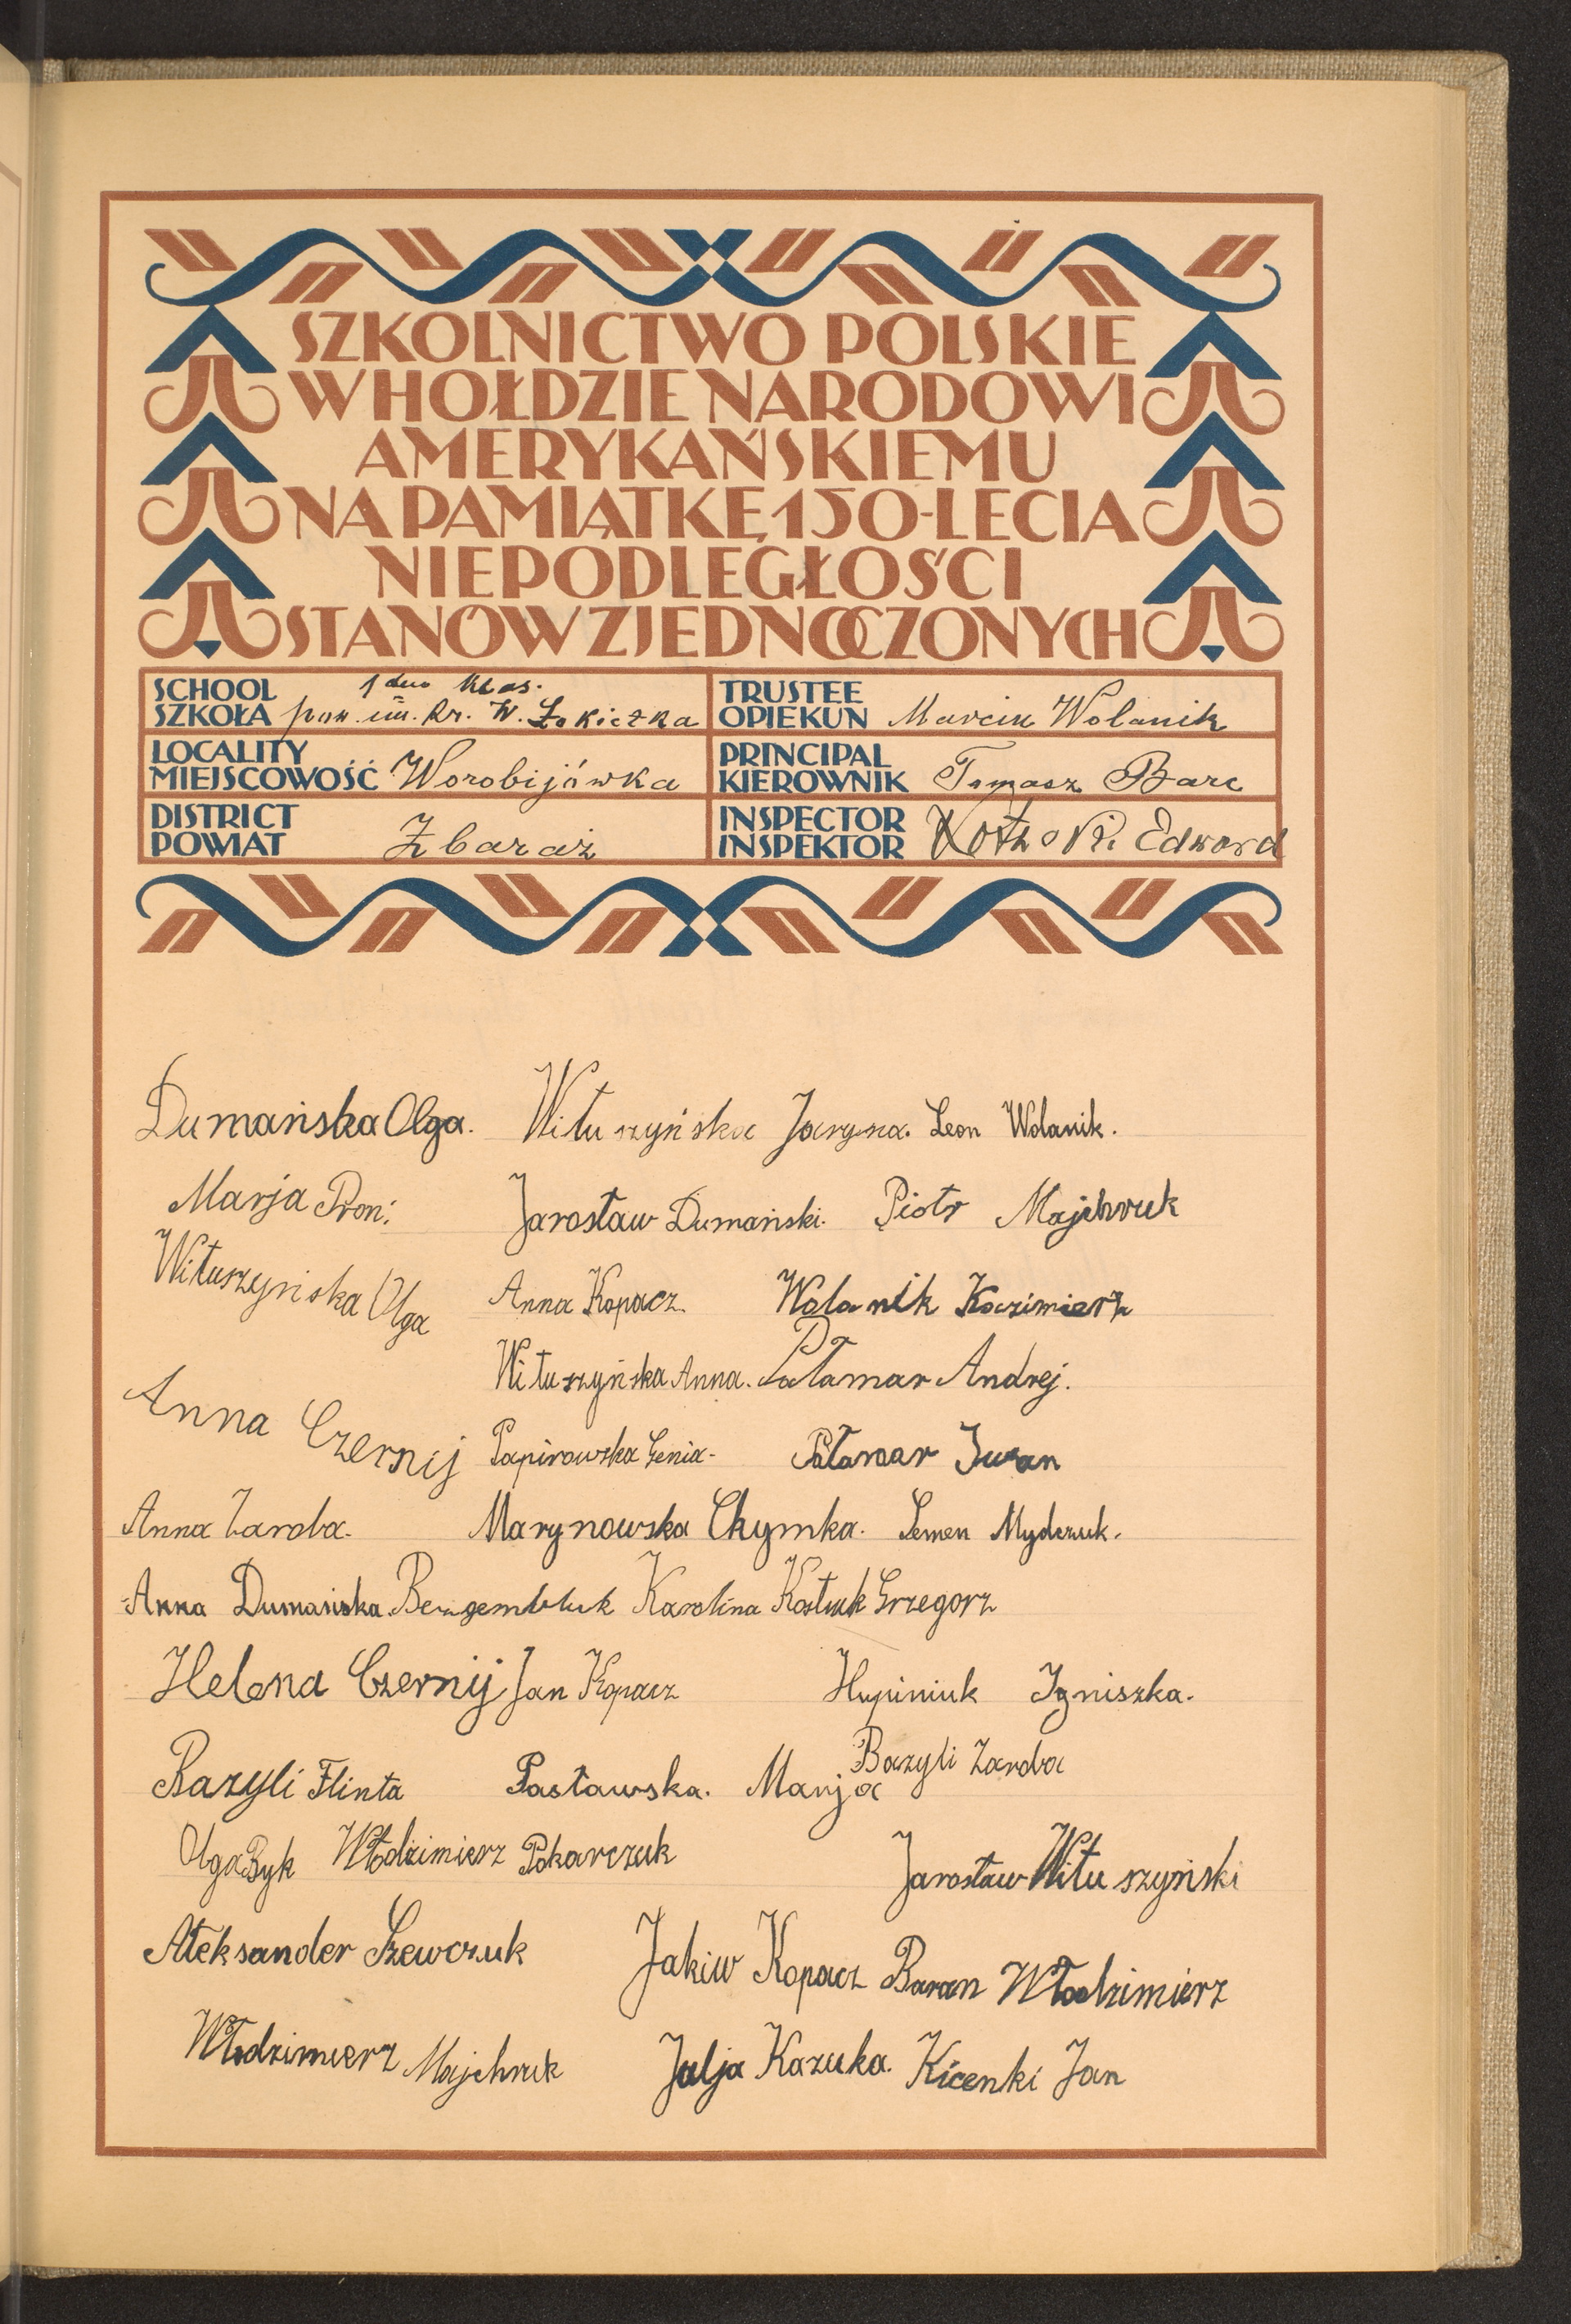 SZKOLNICTWO POLSKIE
W HOŁDZIE NARODOWI
AMERYKAŃSKIEMU
NA PAMIĄTKĘ 150-LECIA
NIEPODLEGŁOŚCI
STANÓW ZJEDNOCZONYCH
SCHOOL
SZKOŁA 1 klas.
im. Kr. W. Łokietka
TRUSTEE
OPIEKUN Marcin Wolanik
LOCALITY
MIEJSCOWOŚĆ Worobijówka
PRINCIPAL
KIEROWNIK Tomasz Barc
DISTRICT
POWIAT Zbaraż
INSPECTOR
INSPEKTOR Edward
Dumańska Olga. Wituszyńska Jaryna. Leon Wolanik.
Marja Proń. Jarosław Dumański. Piotr Majchruk
Wituszyńska Olga Anna Kopacz. Wolanik Kazimierz
Wituszyńska Anna. Pałamar Andrej.
Anna Czernij Papirowska Genia. Pałamar Iwan
Anna Zaroba. Marynowska Chymka. Semen Mydczuk.
Anna Dumańska. Karolina Kostiuk Grzegorz
Helena Czernij Jan Kopacz Hupiniuk Igniszka.
Bazyli Flinta Pasławska. Marja Bazyli Zaroba
Olga Byk Włodzimierz Pokarczuk Jarosław Wituszyński
Aleksander Szewczuk Jakiw Kopacz Baran Włodzimierz
Włodzimierz Majchruk Julja Kazuka. Kicenki Jan